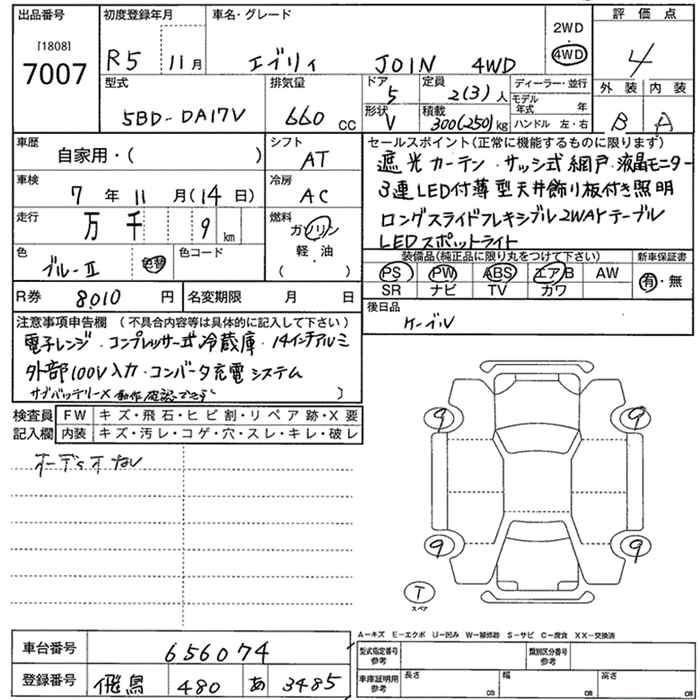 出品番号
[1808]
7007
初度登録年月
R5 11月
車名・グレード
エブリィ JOIN 4WD
2WD
4WD
評価点
4
外装 内装
B A
型式
5BD-DA17V
排気量
660 CC
ドア
5
形状
V
定員
2(3)人
積載
300(250)kg
ディーラー・並行
モデル年式 年
ハンドル 左・右
車歴
自家用・( )
シフト
AT
車検
7年 11月(14日)
冷房
AC
走行
万 千 9 km
燃料
ガソリン
軽・油
( )
色
ブルーⅡ
色替
色コード
R券 8,010 円
名変期限 月 日
セールスポイント(正常に機能するものに限ります)
遮光カーテン・サッシ式網戸・液晶モニター
3連LED付薄型天井飾り板付き照明
ロングスライドフレキシブル2WAYテーブル
LEDスポットライト
装備品(純正品に限り丸をつけて下さい)
PS PW ABS エアB AW
SR ナビ TV カワ
新車保証書
有・無
後日品
ケーブル
注意事項申告欄(不具合内容等は具体的に記入して下さい)
電子レンジ・コンプレッサー式冷蔵庫・14インチアルミ
外部100V入力・コンバータ充電システム
サブバッテリーX )
検査員記入欄
FW キズ・飛石・ヒビ割・リペア跡・X要
内装 キズ・汚レ・コゲ・穴・スレ・キレ・破レ
9 9
9 9
T
スペア
A－キズ E－エクボ U－凹み W－補修跡 S－サビ C－腐食 XX－交換済
車台番号 656074
登録番号 飛鳥 480 あ 3485
型式指定番号参考
類別区分番号参考
車庫証明用参考
長さ cm 幅 cm 高さ cm